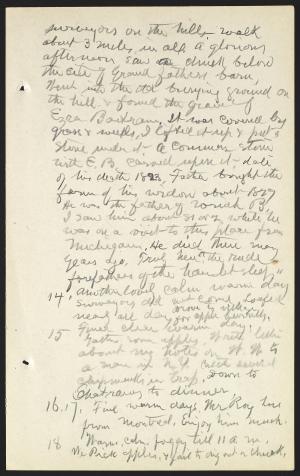 surveyors on the hills, walk
about 3 miles in all. A glorious
afternoon. Saw a chuck below
the site of Grandfathers barn,
Went into the old burying ground on
the hill & found the grave of
Ezra Bartram. It was covered by
grass & weeds, I lifted it up & put a
stone under it. A common stone
with E. B. carved upon it - date
of his death 1823. Father bought the
farm of his widow about 1827
He was the father of B.
I saw him about 51 or 2 while he
was on a visit to this place from
Michigan. He died there many
years ago. Truly here "the rude
forefathers of the hamlet sleep,"
14 Another lovel calm warm day
surveyors did not come. Loafed
nearly all day. Drove to village
for apple barrels.
15 Finer clear warm day.
Gather some apples. Write letter
about my notes on W. W. to
a man in N.J. Catch several
chipmunks in trap. Down to
to dinner.
16. 17. Fine warm days. Mr Roy here
from Montreal. Enjoy him much.
18 Warm, calm, foggy till 11 a.m.
We Pick apples, & start to dig out a chuck,